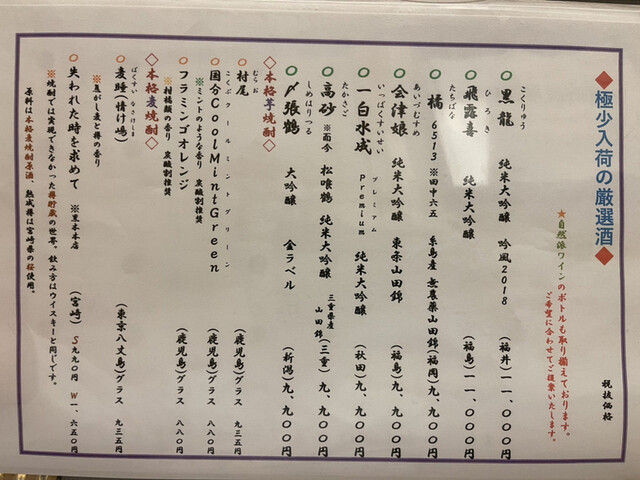 ◆極少入荷の厳選酒◆
★自然派ワインのボトルも取り揃えております。
ご希望に合わせてご提案いたします。
税抜価格
こくりゅう
○黒龍 純米大吟醸 吟風2018 (福井)一一、〇〇〇円
ひろき
○飛露喜 純米大吟醸 (福島)一一、〇〇〇円
たちばな
○橘6513※田中六五 糸島産 無農薬山田錦(福岡)九、九〇〇円
あいづむすめ
○会津娘 純米大吟醸 東条山田錦 (福島)九、九〇〇円
いっぱくすいせい プレミアム
○一白水成 Premium 純米大吟醸 (秋田)九、九〇〇円
たかさご
○高砂 ※而今 松喰鶴 純米大吟醸 三重県産山田錦 (三重)九、九〇〇円
しめはりつる
○〆張鶴 大吟醸 金ラベル (新潟)九、九〇〇円
◇本格芋焼酎◇
むらお
○村尾 (鹿児島)グラス 九三五円
こくぶクールミントグリーン
○国分CoolMintGreen (鹿児島)グラス 八八〇円
※ミントのような香り 炭酸割推奨
○フラミンゴオレンジ (鹿児島)グラス 八八〇円
※柑橘類の香り 炭酸割推奨
◇本格麦焼酎◇
ばくすい なさけしま
○麦睡(情け嶋) (東京八丈島)グラス 九三五円
※焦がし麦と樽の香り
○失われた時を求めて ※黒木本店 (宮崎)S九九〇円 W一、六五〇円
※焼酎では実現できなかった樽貯蔵の世界。飲み方はウイスキーと同じです。
原料は本格麦焼酎原酒、熟成樽は宮崎県の桜使用。